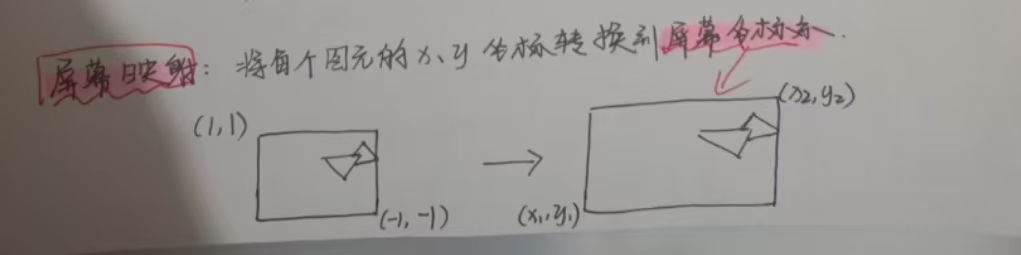 屏幕映射：将每个图元的x、y坐标转换到屏幕坐标系.
(1,1)
(x₂,y₂)
(-1,-1)
(x₁,y₁)